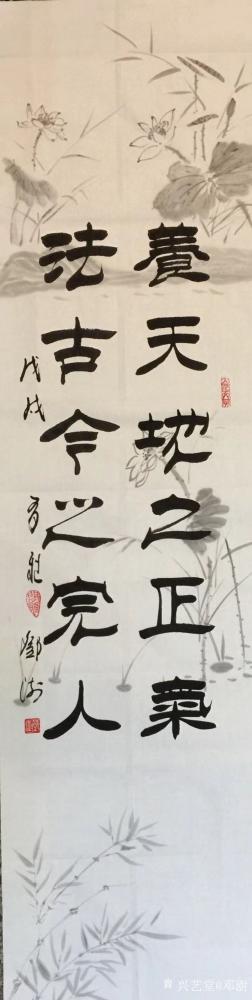 養天地之正氣
法古今之完人
戊戌
鄧澍
兴艺堂@邓澍